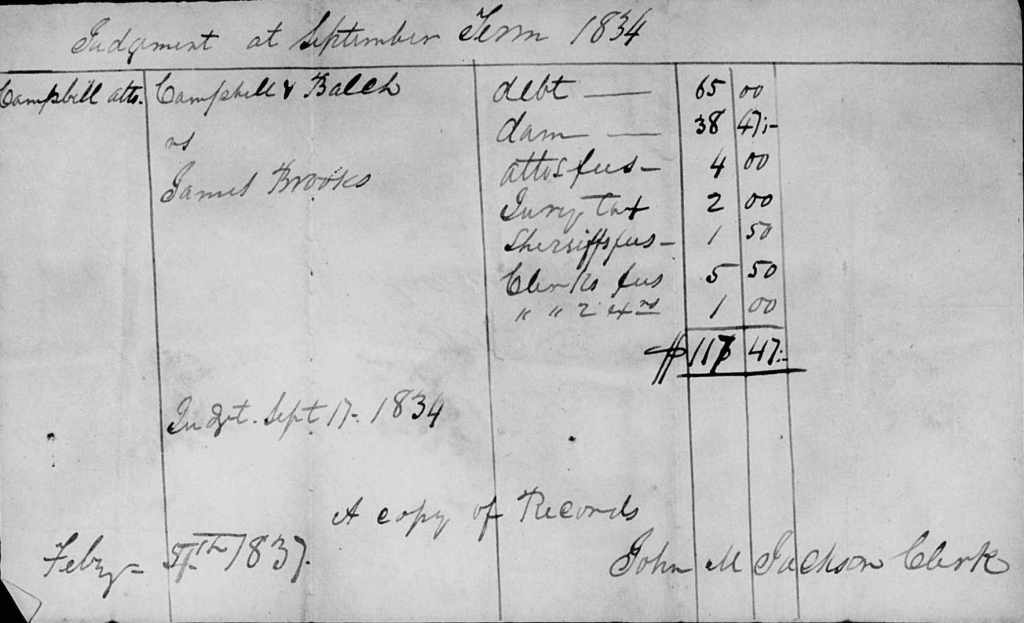 Judgment at September Term 1834
Campbell atto. Campbell & Balch debt — 65 00
vs dam — 38 47:-
James Brooks attos fees - 4 00
Jury Tax 2 00
Sheriffs fees - 1 50
Clerks fees 5 50
" " 2 exns 1 00
$117 47:-
Judgt. Sept 17- 1834
A copy of Records
Feby - 5th 1837.
John M Jackson Clerk